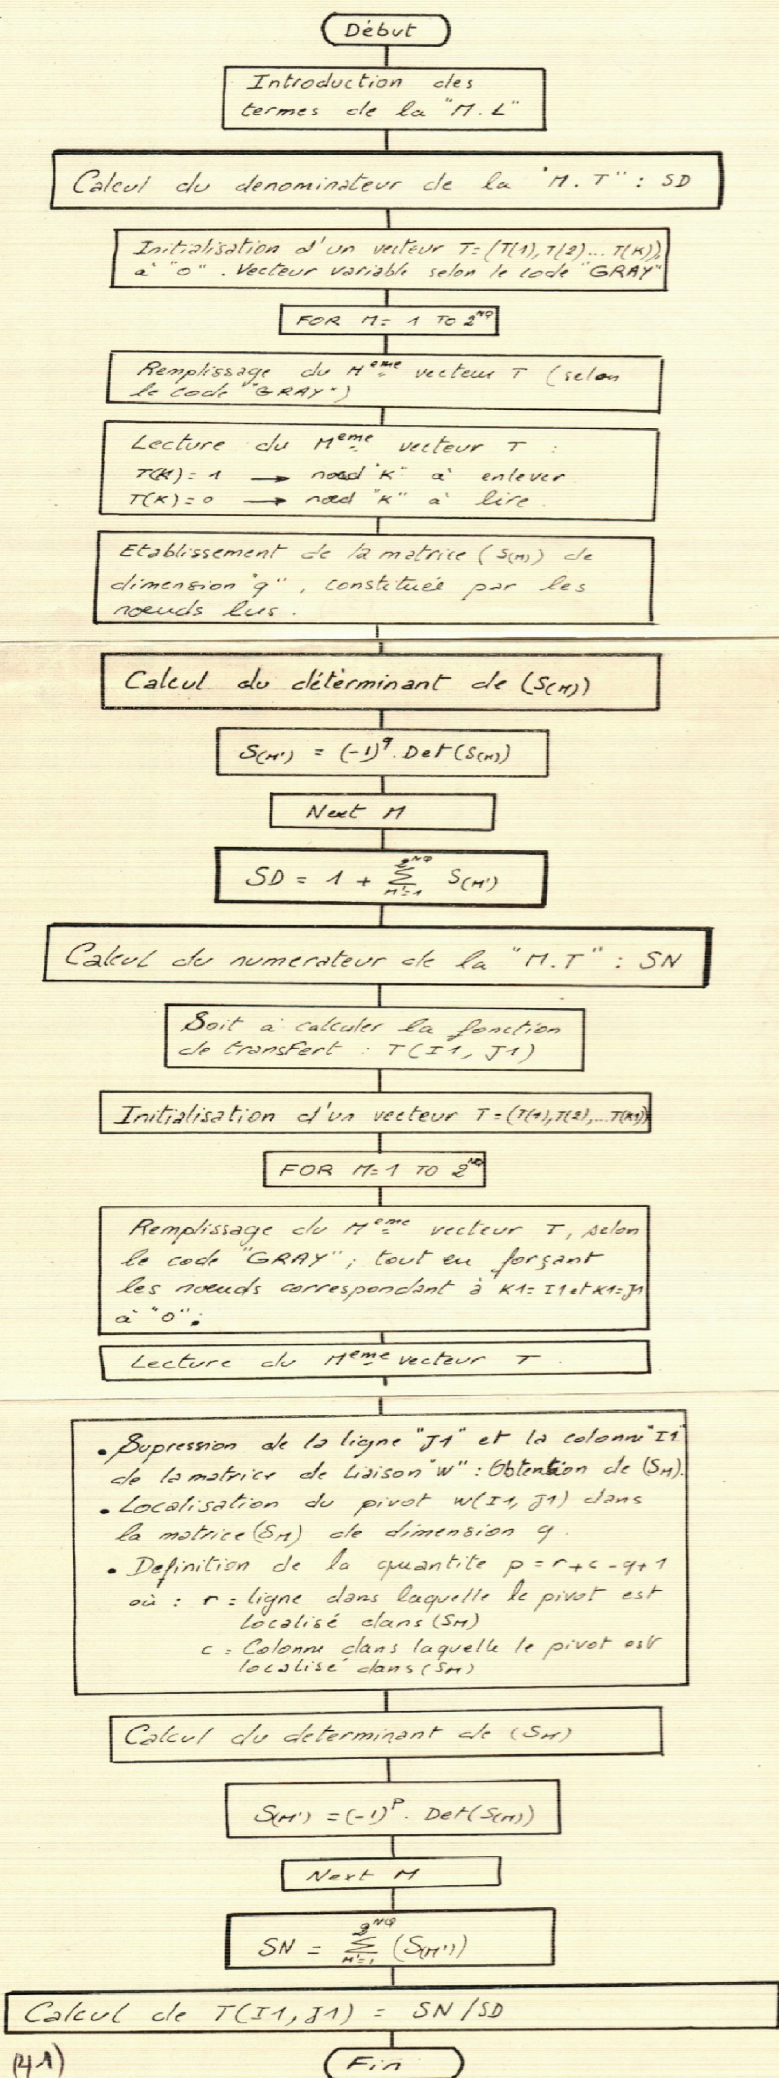 Début
Introduction des
termes de la "M.L"
Calcul du denominateur de la "M.T" : SD
Initialisation d'un vecteur T=(T(1),T(2)...T(K)),
à "0". Vecteur variable selon le code "GRAY"
FOR M= 1 TO 2^NQ
Remplissage du Meme vecteur T (selon
le code "GRAY")
Lecture du Meme vecteur T :
T(K)= 1 → nœud "K" à enlever
T(K)= 0 → nœud "K" à lire.
Etablissement de la matrice (S(M)) de
dimension "q", constituée par les
nœuds lus.
Calcul du déterminant de (S(M))
S(M') = (-1)^q. Det(S(M))
Next M
SD = 1 + 2^NQ Σ M'=1 S(M')
Calcul du numerateur de la "M.T" : SN
Soit à calculer la fonction
de transfert : T(I1, J1)
Initialisation d'un vecteur T=(T(1),T(2),...T(K1))
FOR M=1 TO 2^NQ
Remplissage du Meme vecteur T, selon
le code "GRAY"; tout en forçant
les nœuds correspondant à K1=I1 et K1=J1
à "0";
Lecture du Meme vecteur T.
• Supression de la ligne "J1" et la colonne "I1"
de la matrice de Liaison "W" : Obtention de (SM).
• Localisation du pivot W(I1, J1) dans
la matrice (SM) de dimension q.
• Definition de la quantite p = r+c-q+1
où : r = ligne dans laquelle le pivot est
localisé dans (SM)
c = Colonne dans laquelle le pivot est
localisé dans (SM)
Calcul du determinant de (SM)
S(M') = (-1)^P. Det(S(M))
Next M
SN = 2^NQ Σ M'=1 (S(M'))
Calcul de T(I1, J1) = SN/SD
(41)
Fin